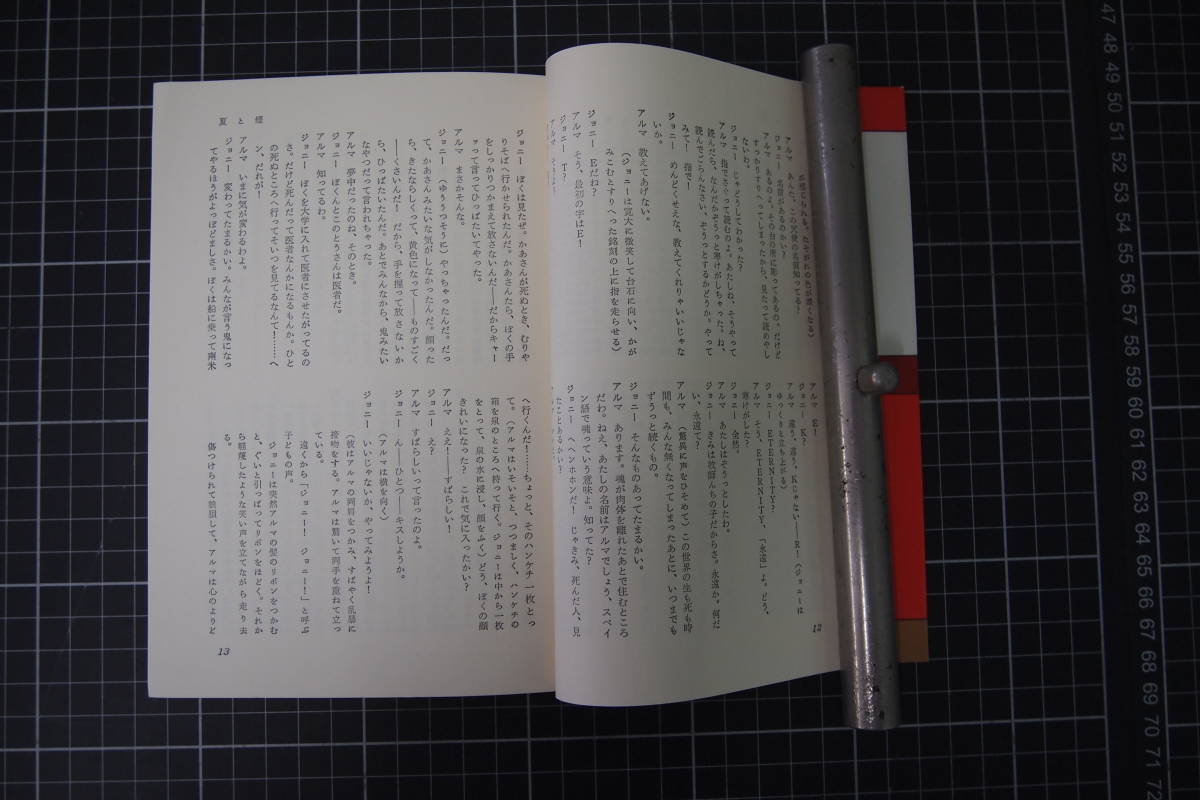 アルマ　あんた、この天使の名前知ってる？
ジョニー　名前があるのかい？
アルマ　あるのよ。その台の所に彫ってあるの。だけど
すっかりすりへってしまったから、見たって読めやし
ないわ。
ジョニー　じゃどうしてわかった？
アルマ　指でさぐって読むのよ。あたしね、そうやって
読んだら、なんだかぞうっと寒けがしちゃった。ね、
読んでごらんなさい、ぞうっとするかどうか。やって
みて！　指で！
ジョニー　めんどくせえな、教えてくれりゃいいじゃな
いか。
アルマ　教えてあげない。
（ジョニーは寛大に微笑して台石に向い、かが
みこむとすりへった銘刻の上に指を走らせる）
ジョニー　Eだね？
アルマ　そう、最初の字はE！
ジョニー　T？
アルマ　E！
ジョニー　K？
アルマ　違う、違う、Kじゃない——R！（ジョニーは
ゆっくりと立ち上がる）
ジョニー　ETERNITY？
アルマ　そう、ETERNITY、「永遠」よ。どう、
寒けがした？
ジョニー　全然。
アルマ　あたしはぞうっとしたわ。
ジョニー　きみは牧師んちの子だからさ。永遠か。何だ
い、永遠て？
アルマ　（驚異に声をひそめて）この世界の生も死も時
間も、みんな無くなってしまったあとに、いつまでも
ずうっと続くもの。
ジョニー　そんなものあってたまるかい。
アルマ　あります。魂が肉体を離れたあとで住むところ
だわ。ねえ、あたしの名前はアルマでしょう、スペイ
ン語で魂っていう意味よ。知ってた？
ジョニー　ヘヘンホンだ！　じゃきみ、死んだ人、見
たことあるかい？
12
夏と煙
ジョニー　ぼくは見たぜ。かあさんが死ぬとき、むりや
りそばへ行かせられたんだ。かあさんたら、ぼくの手
をしっかりつかまえて放さないんだ——だからキャー
って言ってひっぱたいてやった。
アルマ　まさかそんな。
ジョニー　（ゆううつそうに）やっちゃったんだ。だっ
て、かあさんみたいな気がしなかったんだ。顔った
ら、きたならしくって、黄色になって——ものすごく
——くさいんだ！　だから、手を握って放さないか
ら、ひっぱたいたんだ。あとでみんなから、鬼みたい
なやつだって言われちゃった。
アルマ　夢中だったのね、そのとき。
ジョニー　ぼくんとこのとうさんは医者だ。
アルマ　知ってるわ。
ジョニー　ぼくを大学に入れて医者にさせたがってるの
さ。だけど死んだって医者なんかになるもんか。ひと
の死ぬところへ行ってそいつを見てるなんて！……へ
ン、だれが！
アルマ　いまに気が変わるわよ。
ジョニー　変わってたまるかい。みんなが言う鬼になっ
てやるほうがよっぽどましさ。ぼくは船に乗って南米
へ行くんだ！……ちょっと、そのハンケチ一枚とっ
て。（アルマはいそいそと、つつましく、ハンケチの
箱を泉のところへ持って行く。ジョニーは中から一枚
をとって、泉の水に浸し、顔をふく）どう、ぼくの顔
きれいになった？　これで気に入ったかい？
アルマ　ええ！——すばらしい！
ジョニー　え？
アルマ　すばらしいって言ったのよ。
ジョニー　ん——ひとつ——キスしようか。
（アルマは横を向く）
ジョニー　いいじゃないか、やってみようよ！
（彼はアルマの両肩をつかみ、すばやく乱暴に
接吻をする。アルマは驚いて両手を重ねて立っ
ている。
遠くから「ジョニー！　ジョニー！」と呼ぶ
子どもの声。
ジョニーは突然アルマの髪のリボンをつかむ
と、ぐいと引っぱってリボンをほどく。それか
ら嘲笑したような笑い声を立てながら走り去
る。
傷つけられて狼狽して、アルマは心のよりど
13
47
48
49
50
51
52
53
54
55
56
57
58
59
60
61
62
63
64
65
66
67
68
69
70
71
72